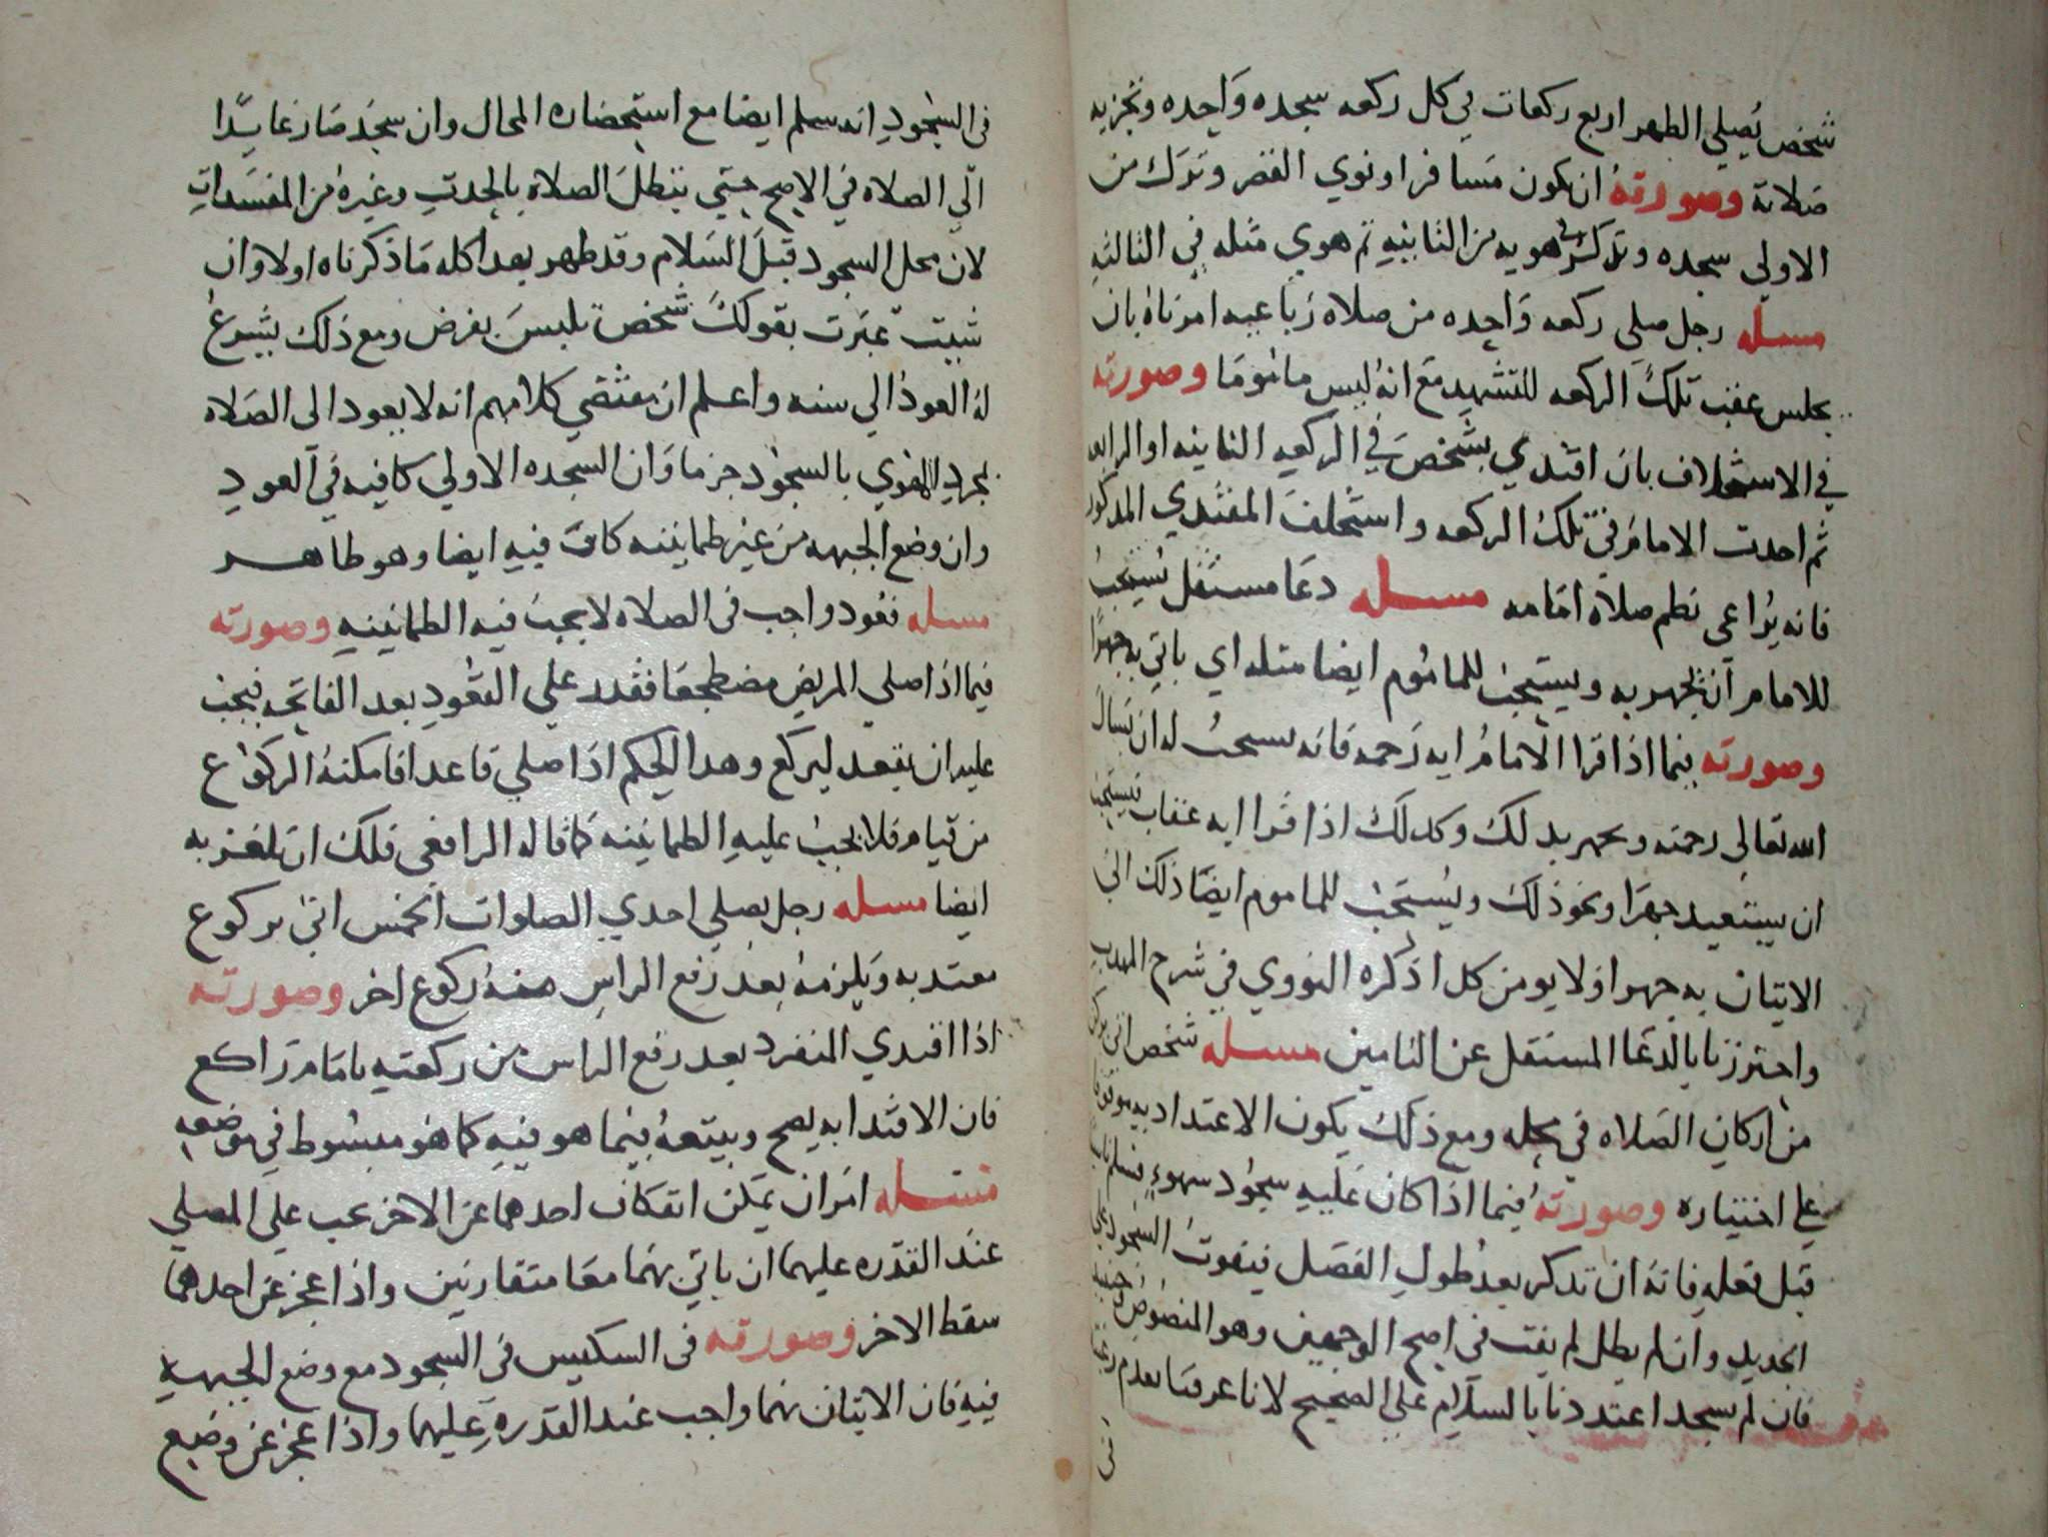 شخص يصلي الظهر اربع ركعات في كل ركعه سجده واحده وتجزيه
صلاته وصورته ان يكون مسافرا ونوي القصر وترك من
الاولي سجده وترك هويه من الثانيه ثم هوي مثله في الثالثه
مسله رجل صلى ركعه واحده من صلاة رباعيه امرناه بان
يجلس عقب تلك الركعه للتشهد مع انه ليس ماموما وصورته
في الاستخلاف بان اقتدي بشخص في الركعه الثانيه او الرابعه
ثم احدث الامام في تلك الركعه واستخلف المقتدي المذكور
فانه يراعي نظم صلاة امامه مسله دعا مستقل يستحب
للامام ان يجهر به ويستحب للماموم ايضا مثله اي ياتي به جهرا
وصورته فيما اذا قرا الامام ايه رحمه فانه يستحب له ان يسال
الله تعالي رحمته ويجهر بذلك وكذلك اذا قرا ايه عذاب فيستحب
ان يستعيذ جهرا ونحو ذلك ويستحب للماموم ايضا ذلك اي
الاتيان به جهرا ولا يومن كذا ذكره النووي في شرح المهذب
واحترزنا بالدعا المستقل عن التامين مسله شخص اتى بركن
من اركان الصلاه في محله ومع ذلك يكون الاعتداد به موقوفا
علي اختياره وصورته فيما اذا كان عليه سجود سهو فسلم ناسيا
قبل فعله فانه ان تذكر بعد طول الفصل فيفوت السجود علي
الجديد وان لم يطل لم يفت في اصح الوجهين وهو المنصوص وحينئذ
فان لم يسجد اعتددنا بالسلام علي الصحيح لانا عرفنا بعدم رغبته
في
في السجود انه سلم ايضا مع استحضاره المحال وان سجد صار عايدا
الي الصلاه في الاصح حتي تبطل الصلاة بالحدث وغيره من المفسدات
لان محل السجود قبل السلام وقد ظهر بعد اكله ما ذكرناه اولا وان
شيت عبرت بقولك شخص تلبس بفرض ومع ذلك يشرع
له العود الي سنه واعلم ان مقتضي كلامهم انه لا يعود الى الصلاة
بمجرد الهوي بالسجود جزما وان السجده الاولي كافيه في العود
وان وضع الجبهه من غير طمانينه كاف فيه ايضا وهو ظاهر
مسله قعود واجب في الصلاه لا يجب فيه الطمانينه وصورته
فيما اذا صلي المريض مضطجعا فقدر علي القعود بعد الفاتحه فيجب
عليه ان يقعد ليركع وهذا الحكم اذا صلي قاعدا فامكنه الركوع
من قيام فلا يجب عليه الطمانينه كما قاله الرافعي فلك ان تلغز به
ايضا مسله رجل يصلي احدي الصلوات الخمس اتى بركوع
معتد به ويلزمه بعد رفع الراس منه ركوع اخر وصورته
اذا اقتدي المنفرد بعد رفع الراس من ركعته بامام راكع
فان الاقتدا به يصح ويتبعه فيما هو فيه كما هو مبسوط في موضعه
مسله امران يمكن انفكاك احدهما عن الاخر يجب علي المصلي
عند القدره عليهما ان ياتي بهما معا متقارنين واذا عجز عن احدهما
سقط الاخر وصورته في التنكيس في السجود مع وضع الجبهه
فيه فان الاتيان بهما واجب عند القدره عليهما واذا عجز عن وضع